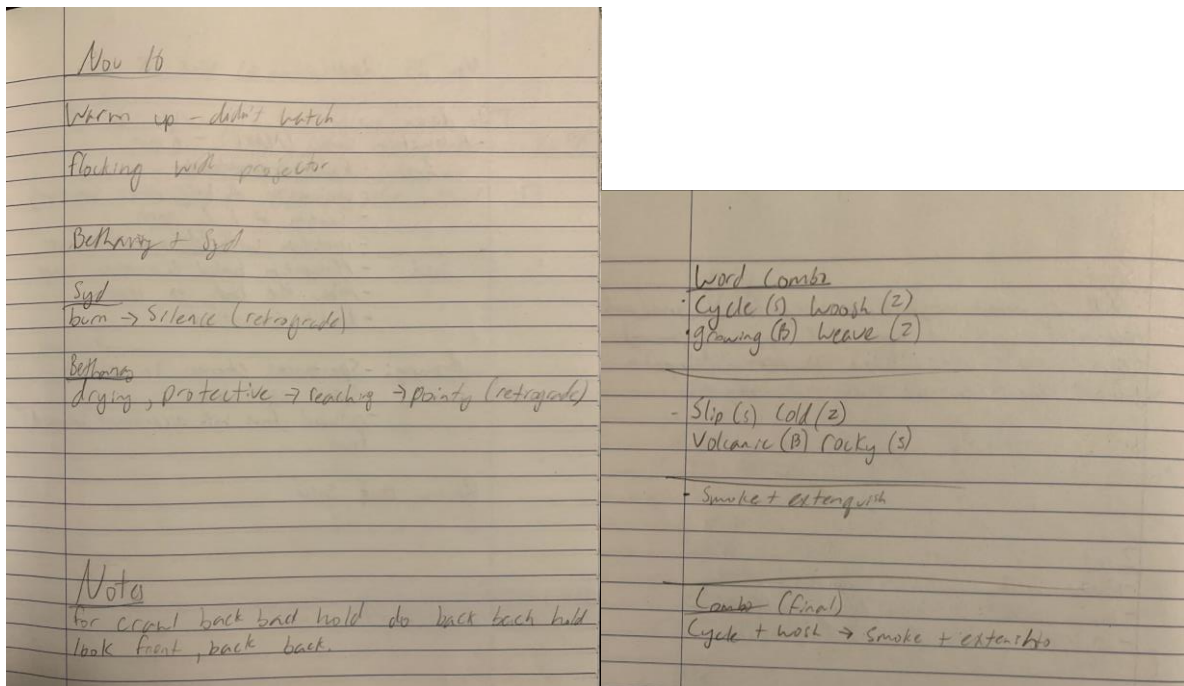 Nov 16
Warm up - didn't watch
flocking with projector
Bethany + Syd
Syd
burn → Silence (retrograde)
Bethany
drying, protective → reaching → pointy (retrograde)
Notes
for crawl back back hold do back back hold
look front, back back.
Word Combz
· Cycle (S) Woosh (Z)
· growing (B) Weave (Z)
- Slip (S) Cold (Z)
Volcanic (B) rocky (S)
- Smoke + extenguish
Combz (final)
Cycle + wosh → Smoke +